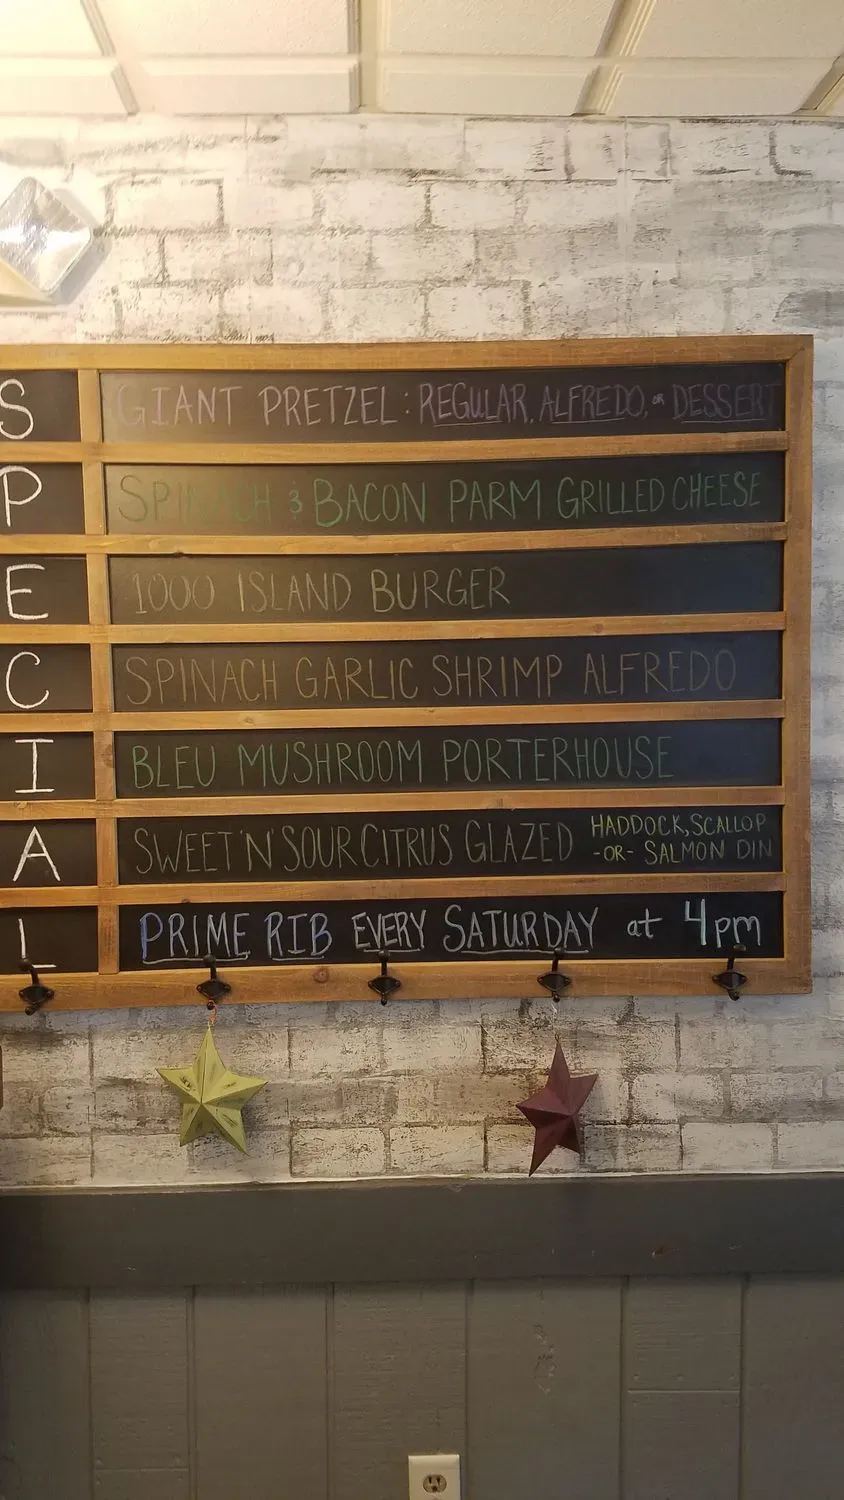 S GIANT PRETZEL: REGULAR, ALFREDO, OR DESSERT
P SPINACH & BACON PARM GRILLED CHEESE
E 1000 ISLAND BURGER
C SPINACH GARLIC SHRIMP ALFREDO
I BLEU MUSHROOM PORTERHOUSE
A SWEET 'N' SOUR CITRUS GLAZED HADDOCK, SCALLOP
-OR- SALMON DIN
L PRIME RIB EVERY SATURDAY at 4pm